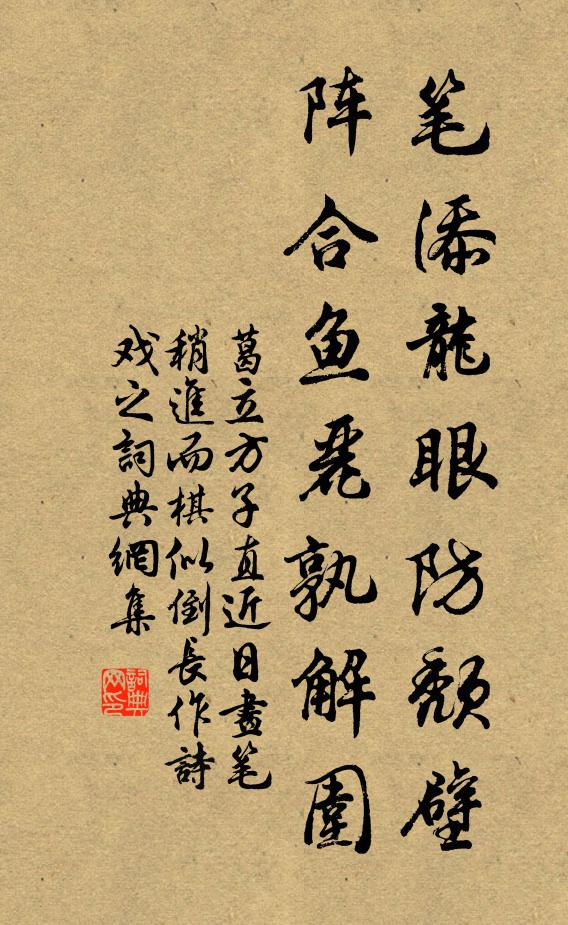 笔添龍眼防頹壁
阵合鱼麗孰解圍
葛立方子直近日畫笔
稍進而棋似倒長作詩
戏之詞典網集
詞典网印